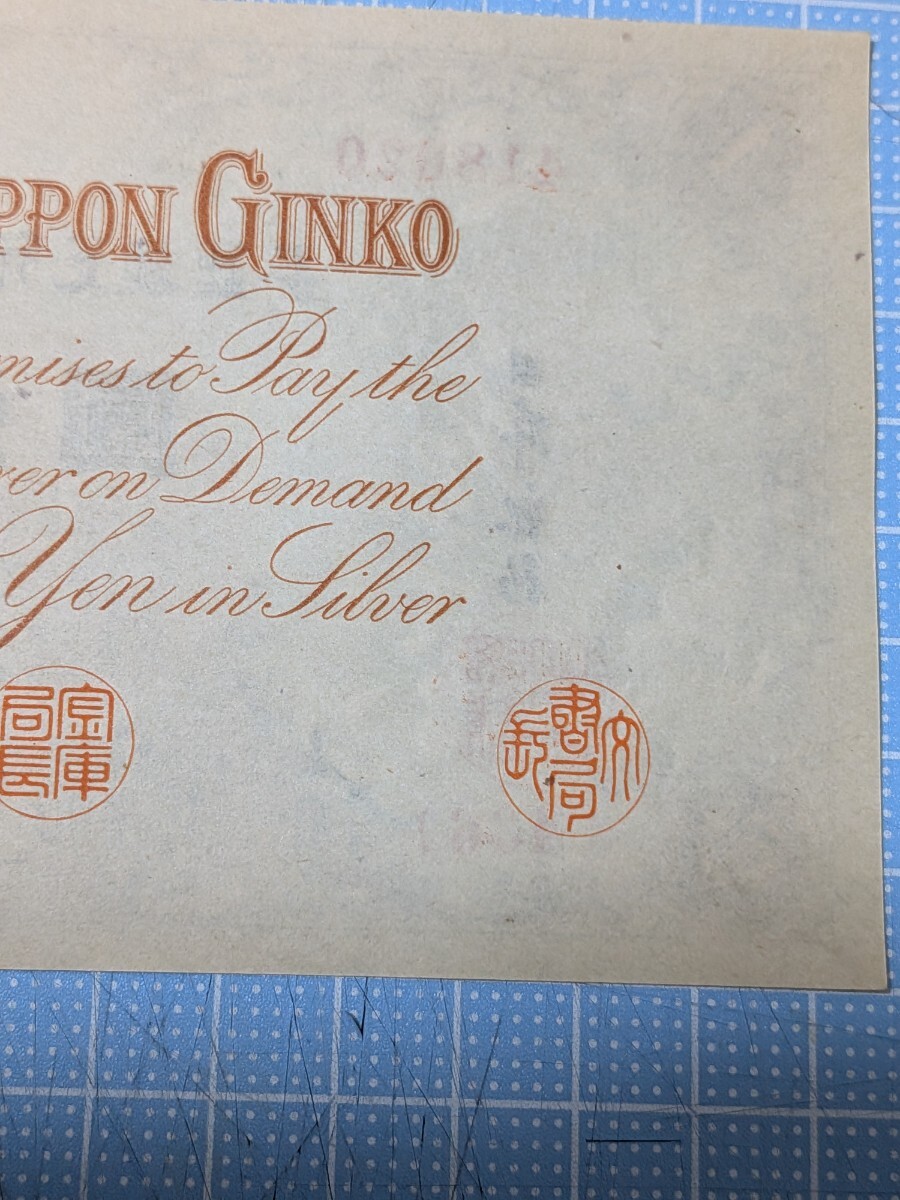 PPON GINKO
mises to Pay the
rer on Demand
Yen in Silver
金庫局長
文書局長